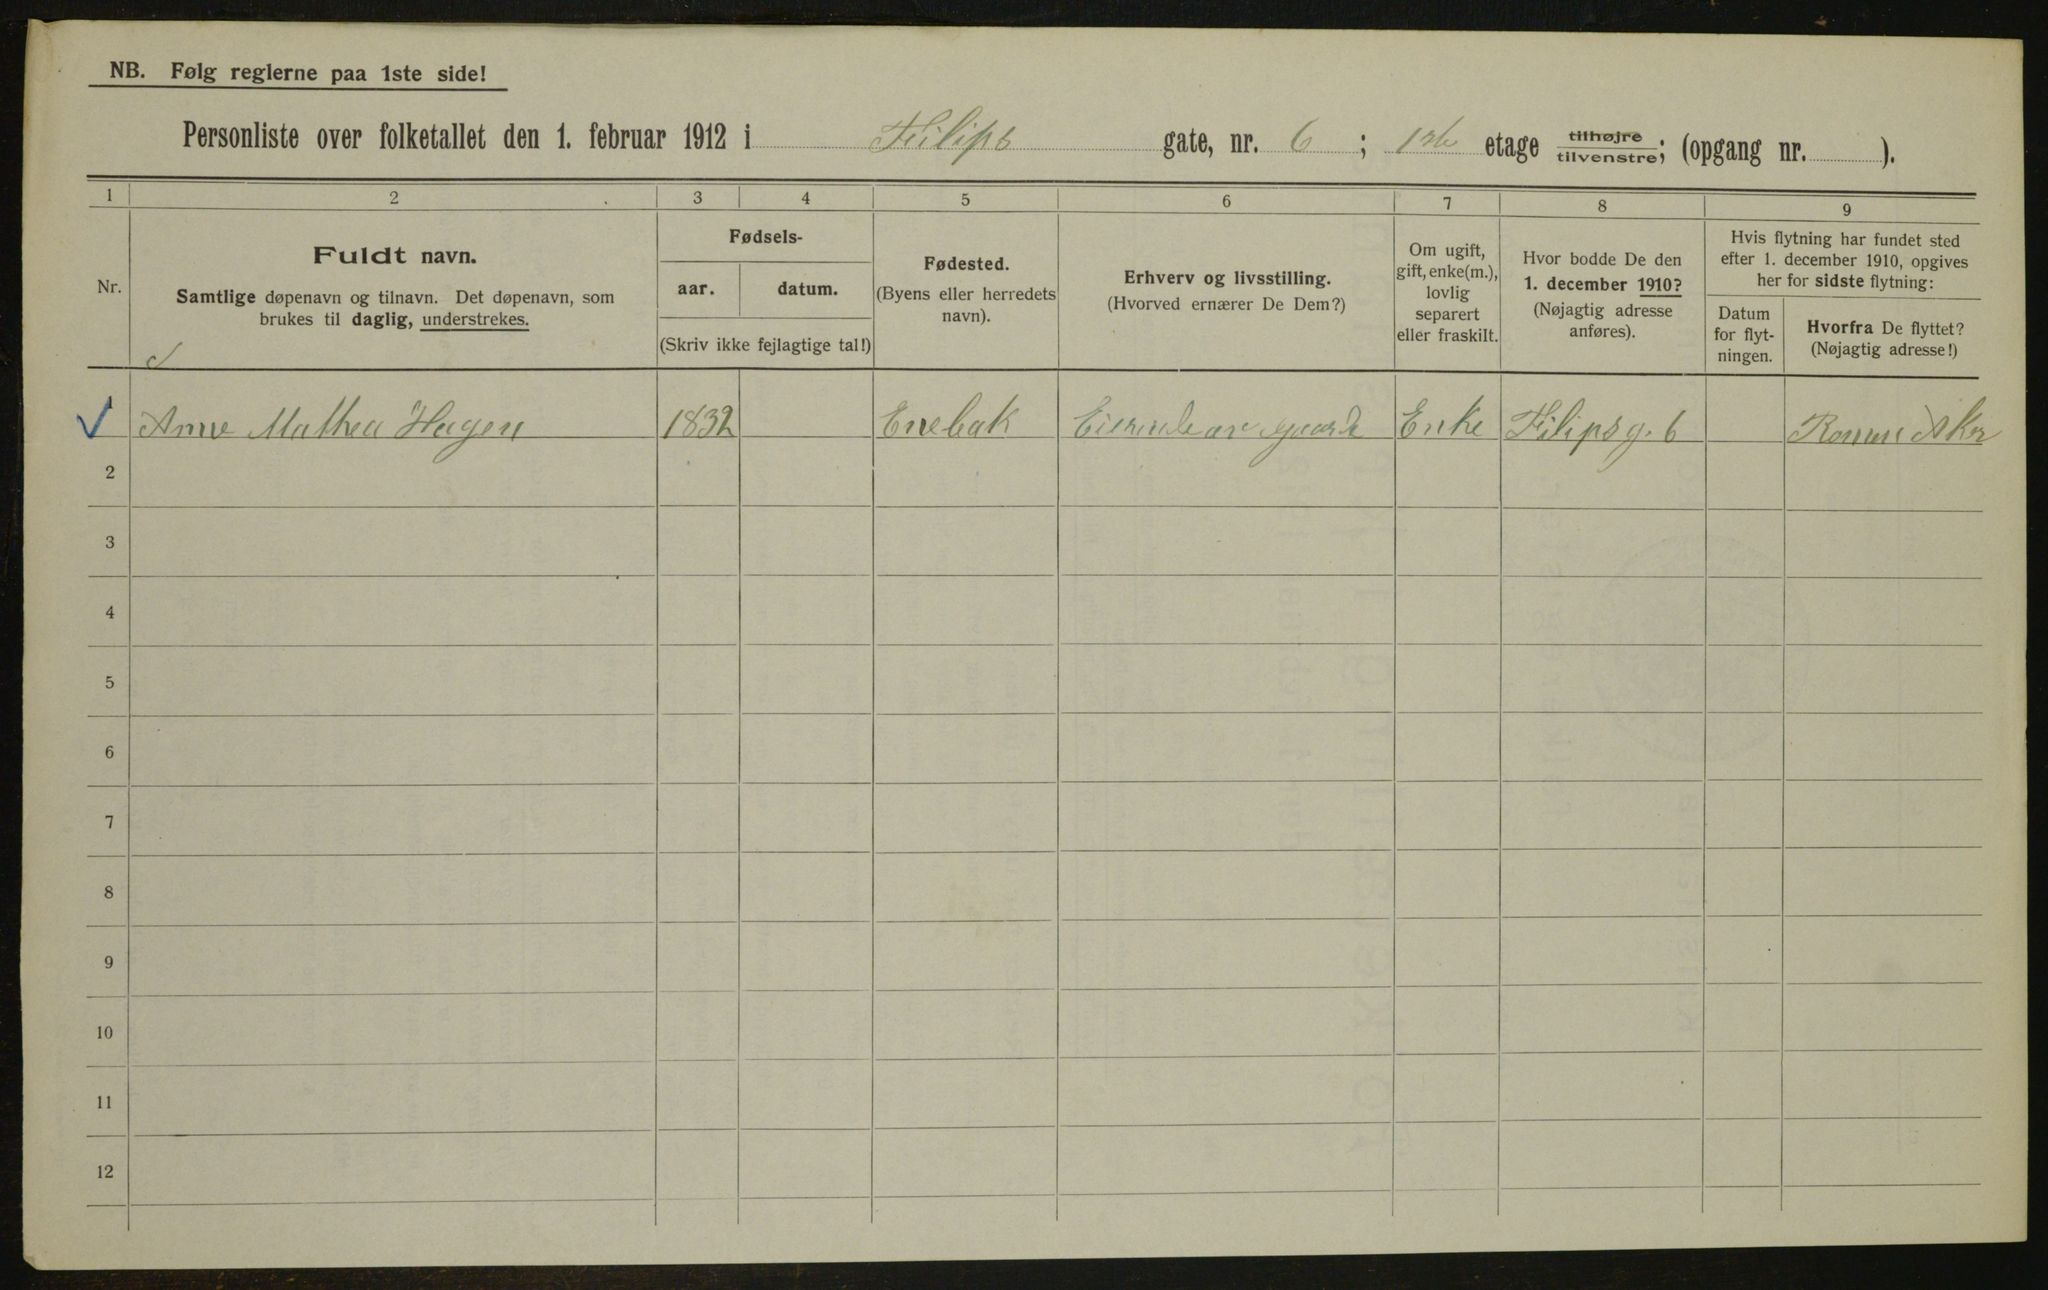 NB. Følg reglerne paa 1ste side!
Personliste over folketallet den 1. februar 1912 i Filips gate, nr. 6 ; 1ste etage tilhøjre tilvenstre; (opgang nr. ).
1 2 3 4 5 6 7 8 9
Nr.
Fuldt navn.
Samtlige døpenavn og tilnavn. Det døpenavn, som
brukes til daglig, understrekes.
Fødsels-
aar. datum.
(Skriv ikke fejlagtige tal!)
Fødested.
(Byens eller herredets
navn).
Erhverv og livsstilling.
(Hvorved ernærer De Dem?)
Om ugift,
gift, enke(m.),
lovlig
separert
eller fraskilt.
Hvor bodde De den
1. december 1910?
(Nøjagtig adresse
anføres).
Hvis flytning har fundet sted
efter 1. december 1910, opgives
her for sidste flytning:
Datum
for flyt-
ningen.
Hvorfra De flyttet?
(Nøjagtig adresse!)
1 Anne Mathea Hagen 1832 Enebak Eierinde av gaard Enke Filipsg. 6 Aker
2
3
4
5
6
7
8
9
10
11
12